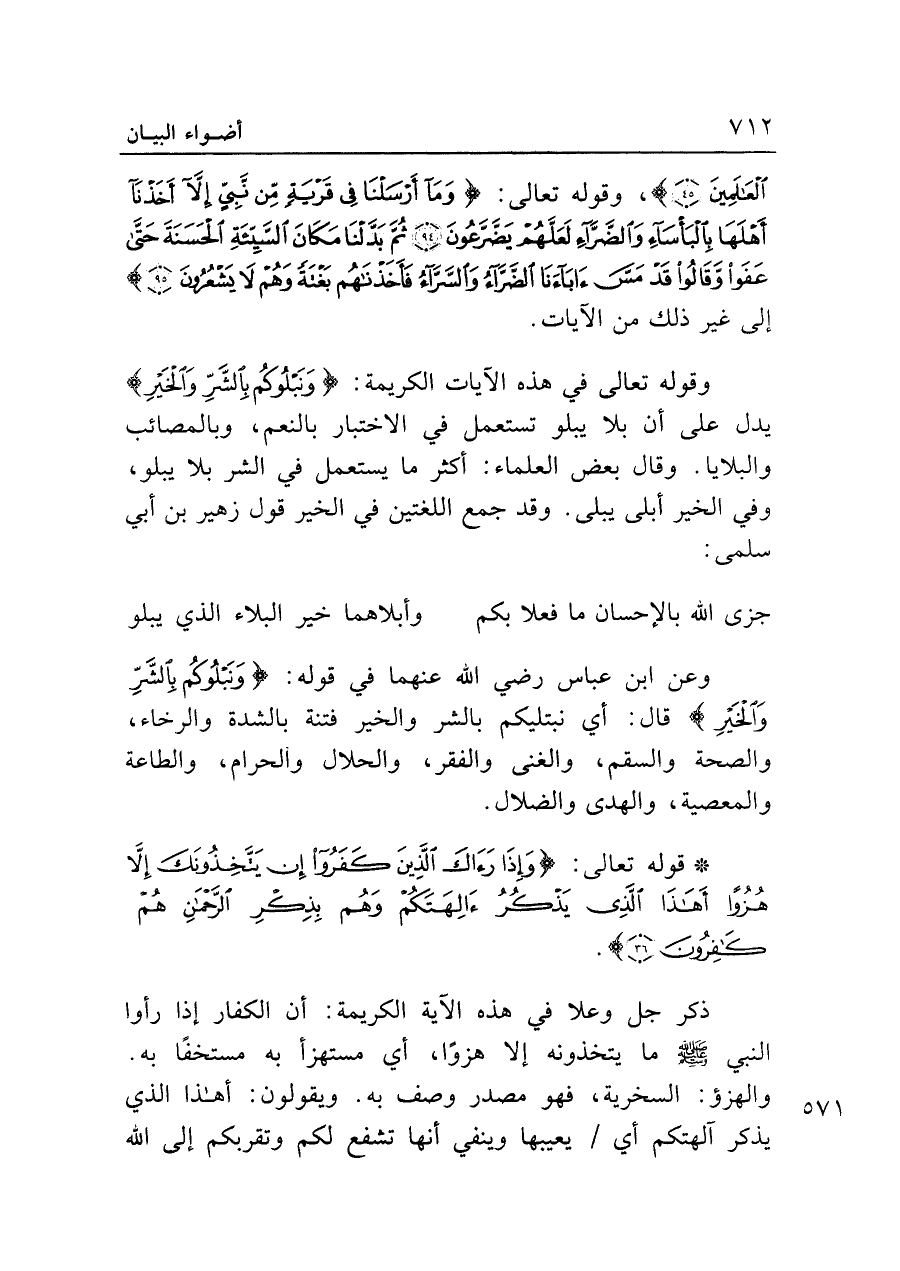 ٧١٢ أضواء البيان
ٱلْعَٰلَمِينَ ٤٥ ﴾، وقوله تعالى: ﴿ وَمَآ أَرْسَلْنَا فِى قَرْيَةٍ مِّن نَّبِىٍّ إِلَّآ أَخَذْنَآ
أَهْلَهَا بِٱلْبَأْسَآءِ وَٱلضَّرَّآءِ لَعَلَّهُمْ يَضَّرَّعُونَ ٩٤ ثُمَّ بَدَّلْنَا مَكَانَ ٱلسَّيِّئَةِ ٱلْحَسَنَةَ حَتَّىٰ
عَفَوا۟ وَّقَالُوا۟ قَدْ مَسَّ ءَابَآءَنَا ٱلضَّرَّآءُ وَٱلسَّرَّآءُ فَأَخَذْنَٰهُم بَغْتَةً وَهُمْ لَا يَشْعُرُونَ ٩٥ ﴾
إلى غير ذلك من الآيات.
وقوله تعالى في هذه الآيات الكريمة: ﴿ وَنَبْلُوكُم بِٱلشَّرِّ وَٱلْخَيْرِ ﴾
يدل على أن بلا يبلو تستعمل في الاختبار بالنعم، وبالمصائب
والبلايا. وقال بعض العلماء: أكثر ما يستعمل في الشر بلا يبلو،
وفي الخير أبلى يبلى. وقد جمع اللغتين في الخير قول زهير بن أبي
سلمى:
جزى الله بالإحسان ما فعلا بكم وأبلاهما خير البلاء الذي يبلو
وعن ابن عباس رضي الله عنهما في قوله: ﴿ وَنَبْلُوكُم بِٱلشَّرِّ
وَٱلْخَيْرِ ﴾ قال: أي نبتليكم بالشر والخير فتنة بالشدة والرخاء،
والصحة والسقم، والغنى والفقر، والحلال والحرام، والطاعة
والمعصية، والهدى والضلال.
* قوله تعالى: ﴿ وَإِذَا رَءَاكَ ٱلَّذِينَ كَفَرُوٓا۟ إِن يَتَّخِذُونَكَ إِلَّا
هُزُوًا أَهَٰذَا ٱلَّذِى يَذْكُرُ ءَالِهَتَكُمْ وَهُم بِذِكْرِ ٱلرَّحْمَٰنِ هُمْ
كَٰفِرُونَ ٣٦ ﴾.
ذكر جل وعلا في هذه الآية الكريمة: أن الكفار إذا رأوا
النبي ﷺ ما يتخذونه إلا هزوًا، أي مستهزأ به مستخفًا به.
والهزؤ: السخرية، فهو مصدر وصف به. ويقولون: أهـٰذا الذي ٥٧١
يذكر آلهتكم أي / يعيبها وينفي أنها تشفع لكم وتقربكم إلى الله